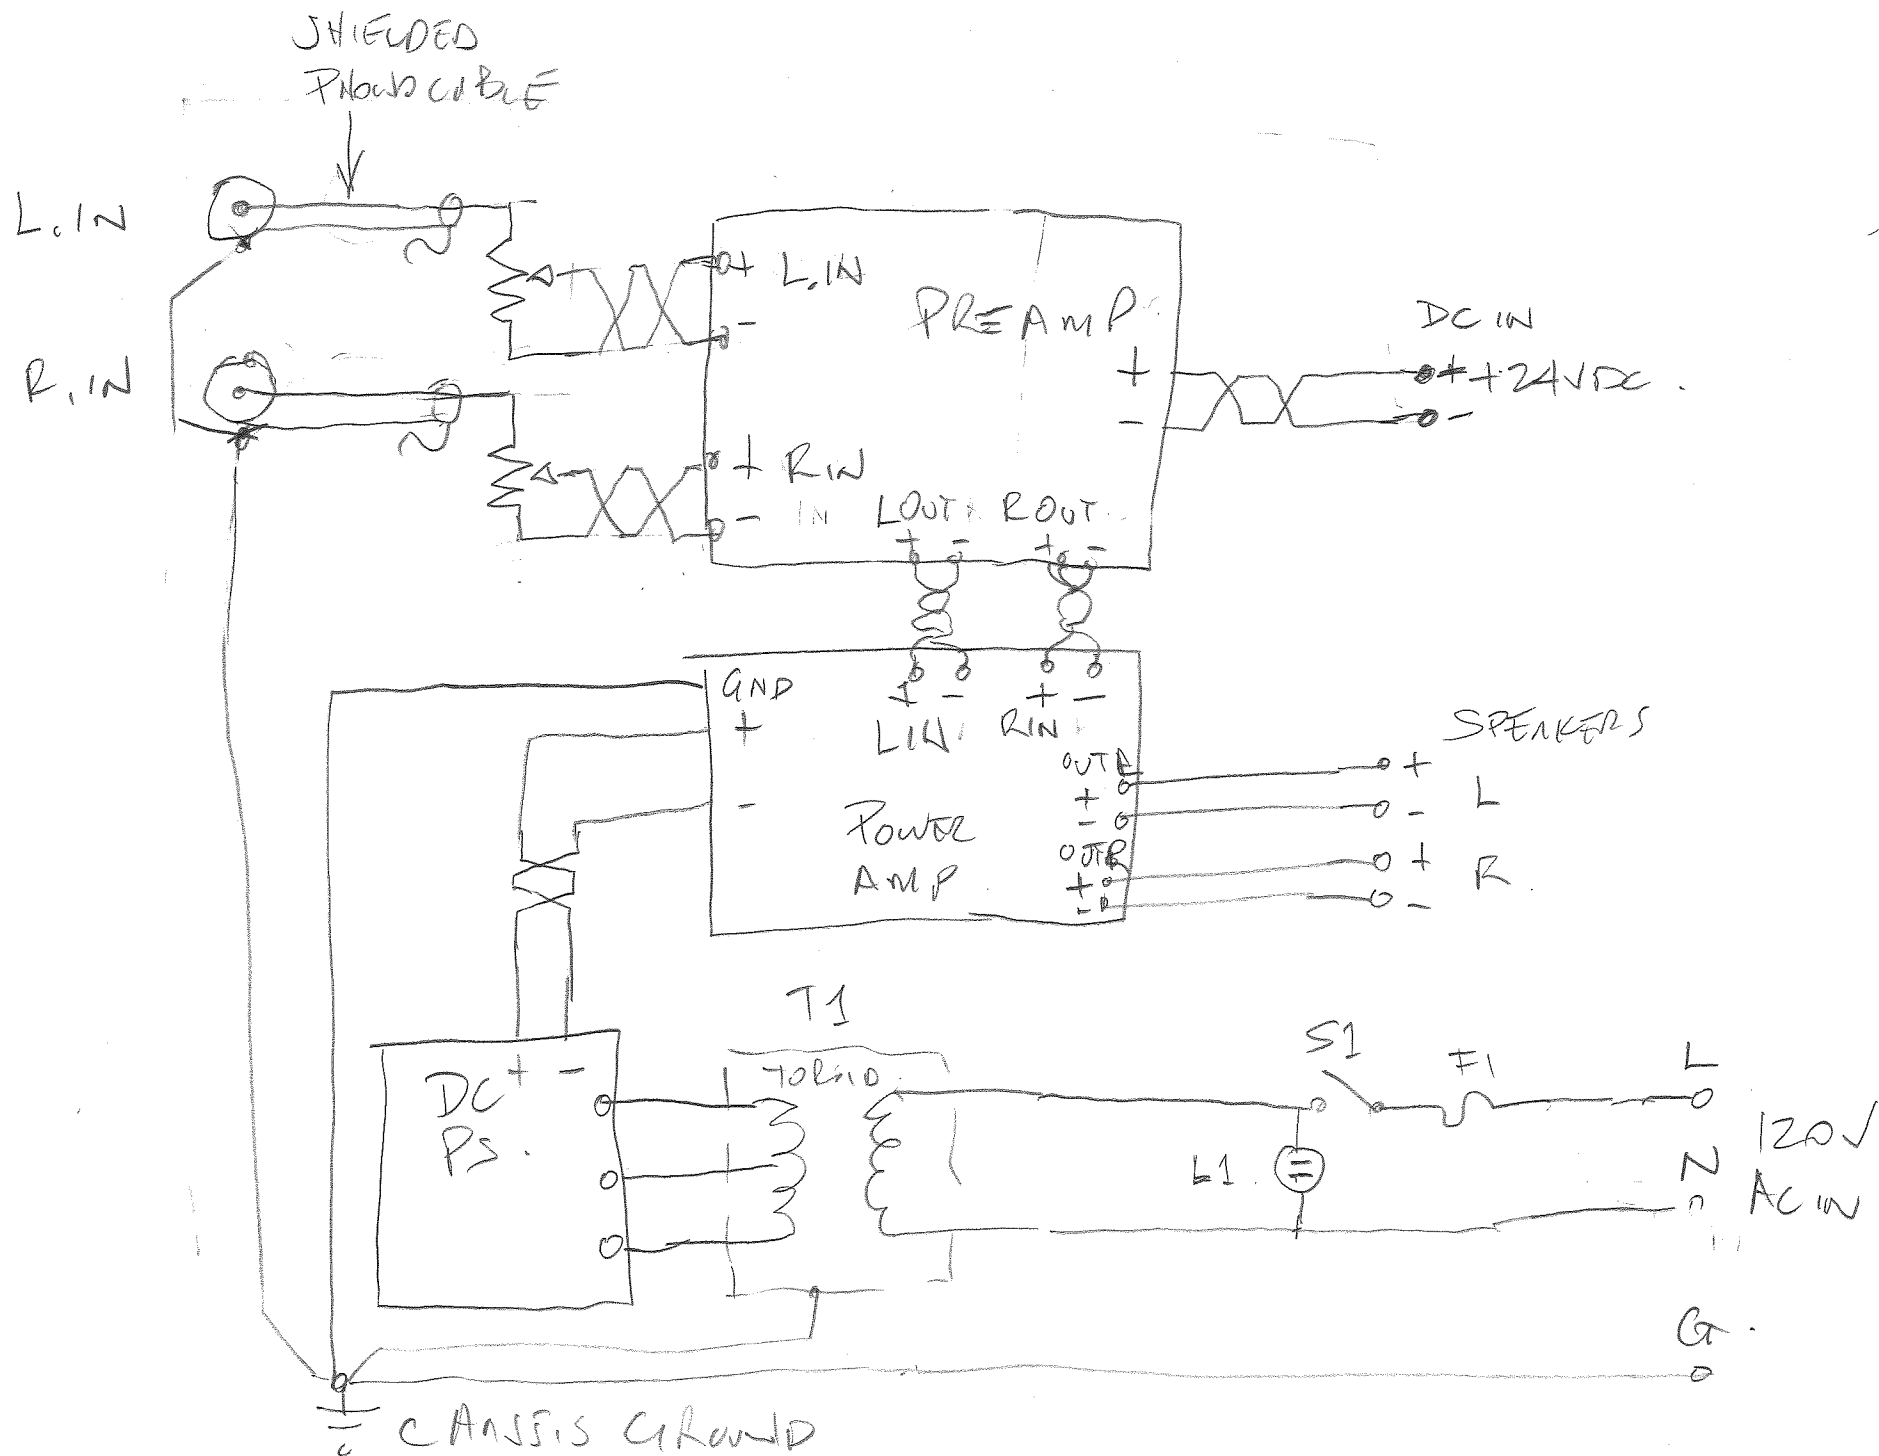 SHIELDED
PHONO CABLE
L.IN
R.IN
+ L.IN
-
PREAMP
+
-
DC IN
+ +24VDC.
-
+ RIN
- IN
LOUT ROUT
+ - + -
GND
+
-
+ - + -
LIN RIN
OUT L
+
-
OUT R
+
-
POWER
AMP
SPEAKERS
+
L
-
+
R.
-
T1
TOROID
+ -
DC
PS.
S1
F1
L
L1.
120V
N
AC IN
G.
CHASSIS GROUND